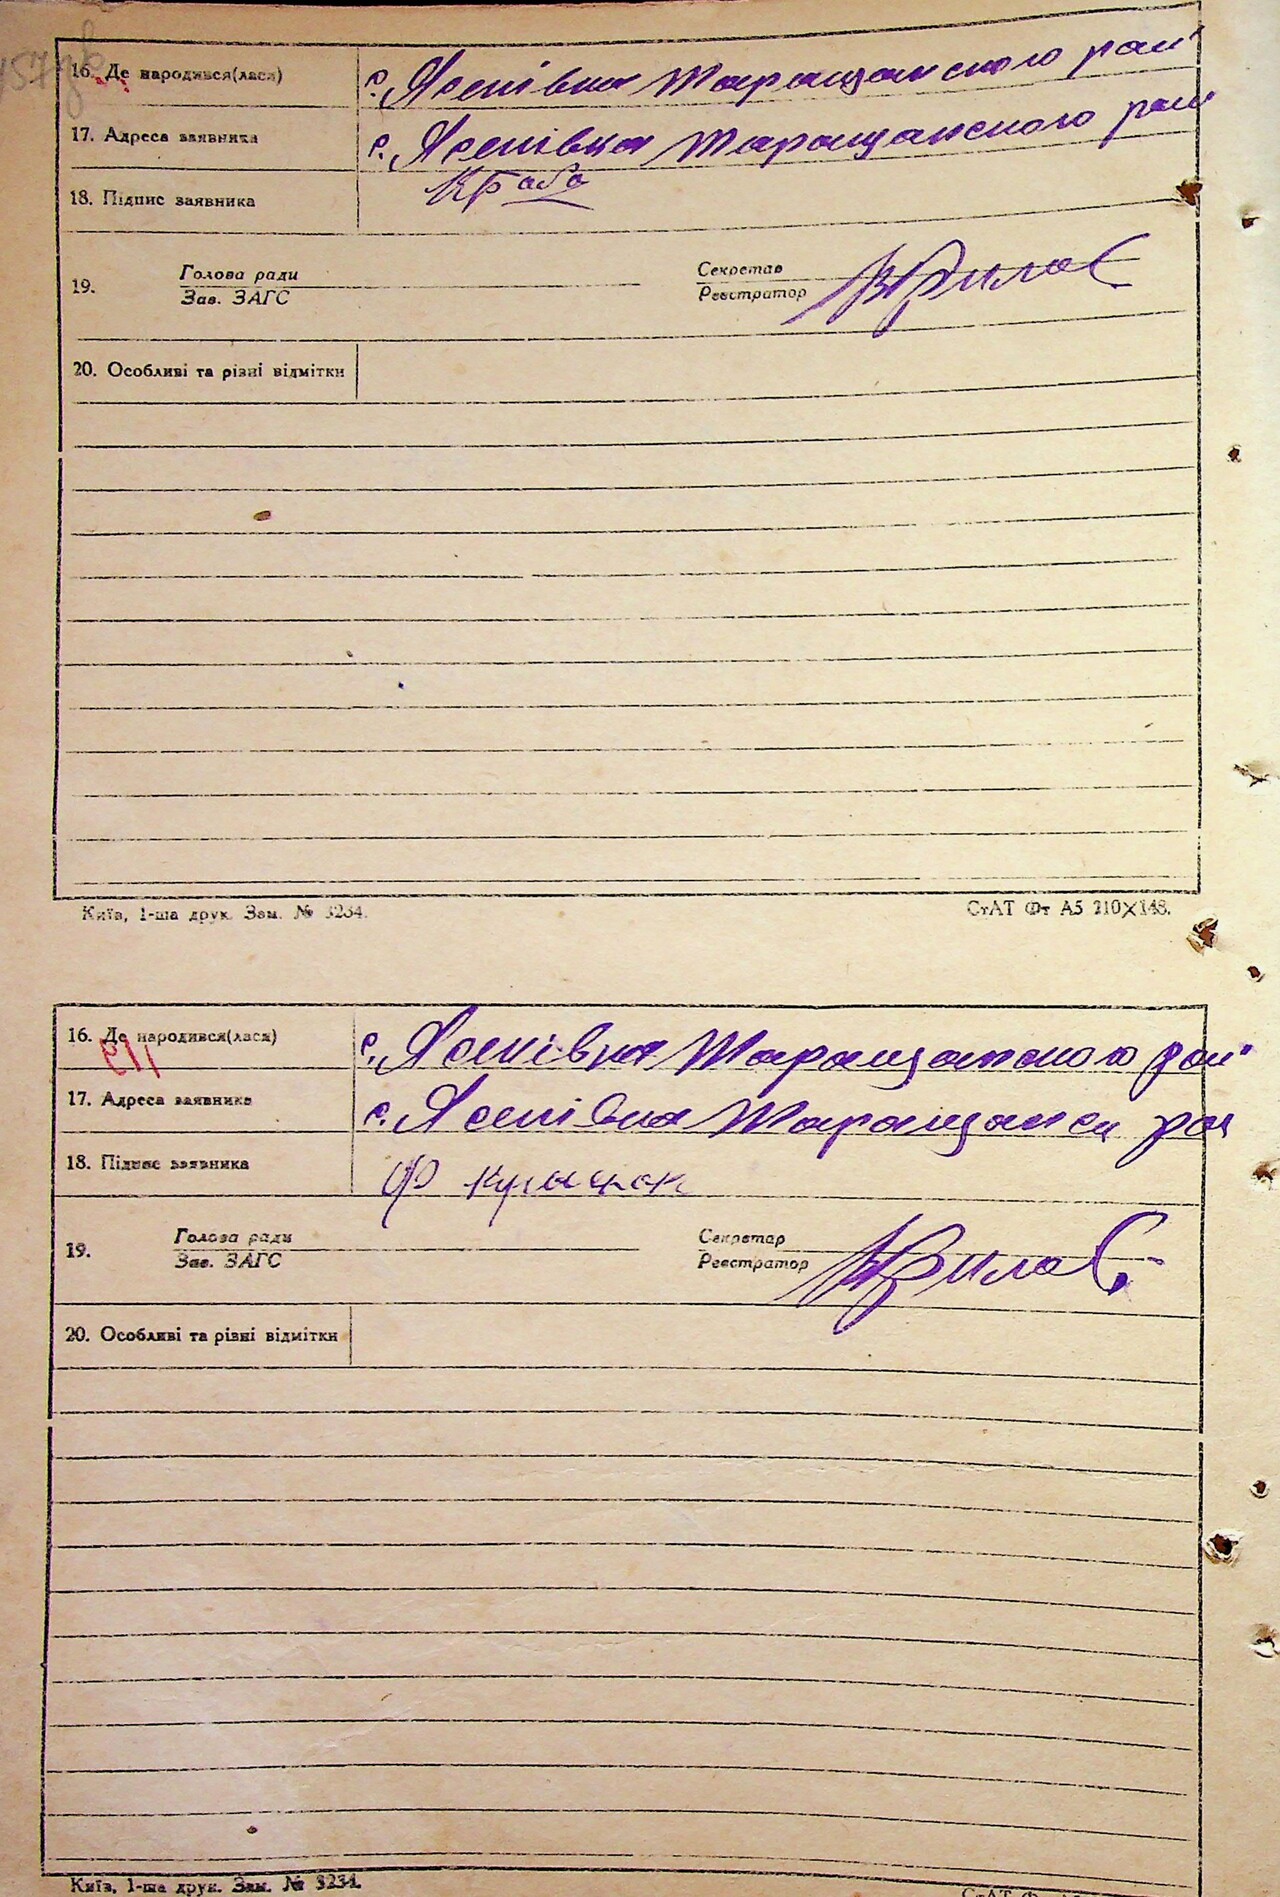 16. Де народився(лася) с. Ясенівка Таращанского рай
17. Адреса заявника с. Ясенівка Таращанского рай
18. Підпис заявника КБаба
19. Голова ради
Зав. ЗАГС
Секретар
Реєстратор
20. Особливі та різні відмітки
Київ, 1-ша друк. Зам. № 3234.
СтАТ Фт А5 210×148.
16. Де народився(лася) с. Ясенівка Таращанского рай
17. Адреса заявника с. Ясенівка Таращанск рай
18. Підпис заявника Ф
19. Голова ради
Зав. ЗАГС
Секретар
Реєстратор
20. Особливі та різні відмітки
Київ, 1-ша друк. Зам. № 3234.